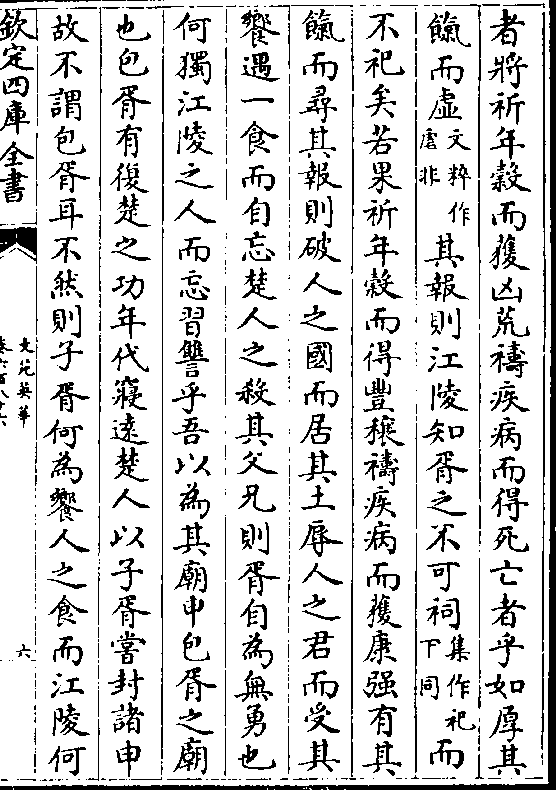 者將祈年穀而獲凶荒禱疾病而得死亡者乎如厚其
餼而虛文粹作虐非其報則江陵知胥之不可祠集作祀下同而
不祀矣若果祈年穀而得豐穰禱疾病而獲康强有其
餼而尋其報則破人之國而居其土辱人之君而受其
饗遇一食而自忘楚人之殺其父兄則胥自為無勇也
何獨江陵之人而忘習讐乎吾以為其廟申包胥之廟
也包胥有復楚之功年代寢遠楚人以子胥嘗封諸申
故不謂包胥耳不然則子胥何為饗人之食而江陵何
欽定四庫全書
文苑英華
六